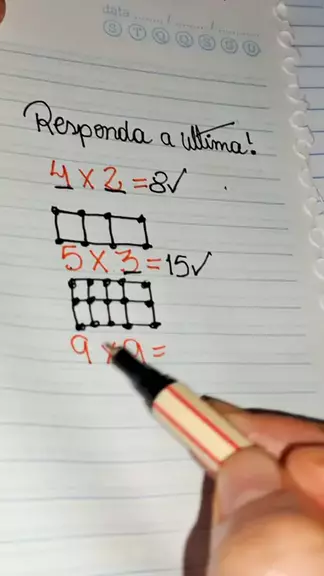 data ..... / ..... / .....
S T Q Q S S D
Responda a última!
4 x 2 = 8✓
5 x 3 = 15✓
9 x 9 =